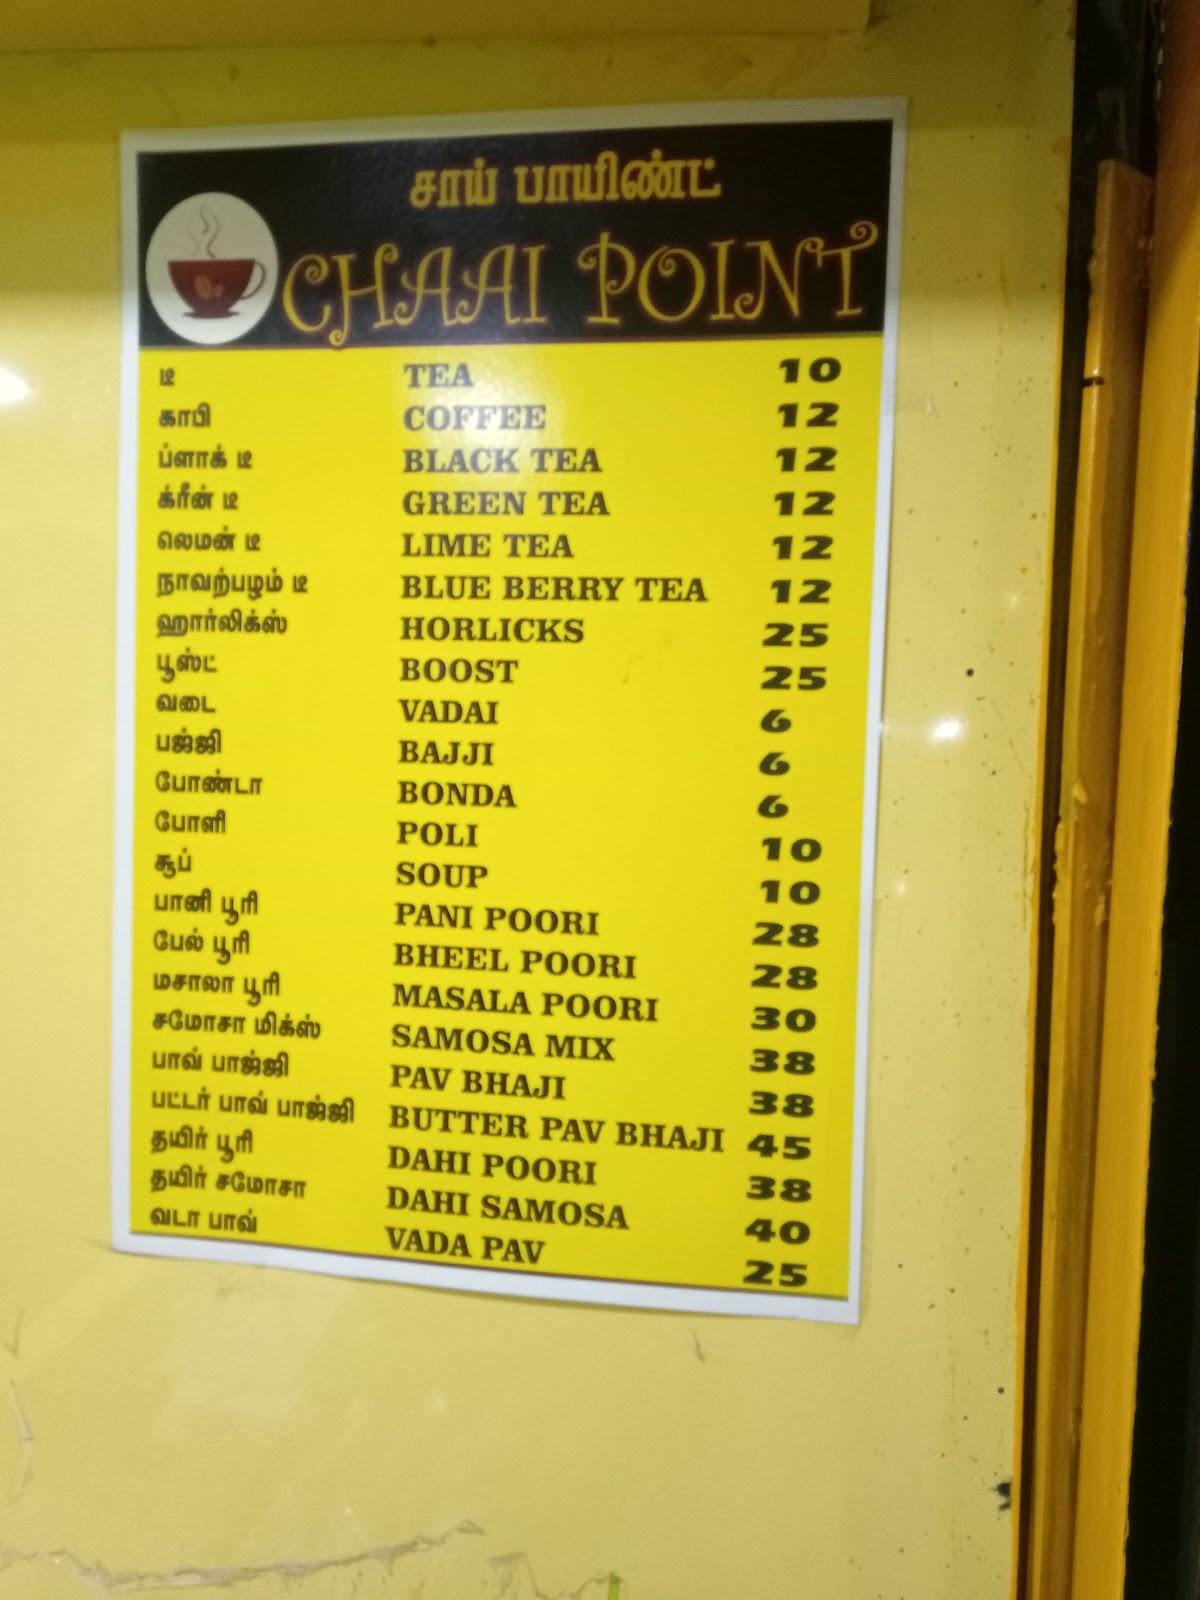 சாய் பாயிண்ட்
CHAAI POINT
டீ TEA 10
காபி COFFEE 12
ப்ளாக் டீ BLACK TEA 12
க்ரீன் டீ GREEN TEA 12
லெமன் டீ LIME TEA 12
நாவற்பழம் டீ BLUE BERRY TEA 12
ஹார்லிக்ஸ் HORLICKS 25
பூஸ்ட் BOOST 25
வடை VADAI 6
பஜ்ஜி BAJJI 6
போண்டா BONDA 6
போளி POLI 10
சூப் SOUP 10
பானி பூரி PANI POORI 28
பேல் பூரி BHEEL POORI 28
மசாலா பூரி MASALA POORI 30
சமோசா மிக்ஸ் SAMOSA MIX 38
பாவ் பாஜ்ஜி PAV BHAJI 38
பட்டர் பாவ் பாஜ்ஜி BUTTER PAV BHAJI 45
தயிர் பூரி DAHI POORI 38
தயிர் சமோசா DAHI SAMOSA 40
வடா பாவ் VADA PAV 25